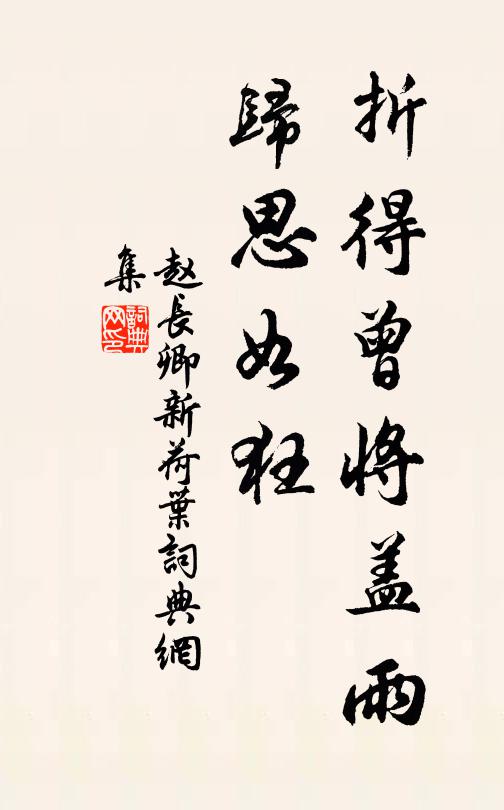 折得曾将盖雨
歸思如狂
赵長卿新荷葉詞典網
集
詞典网印